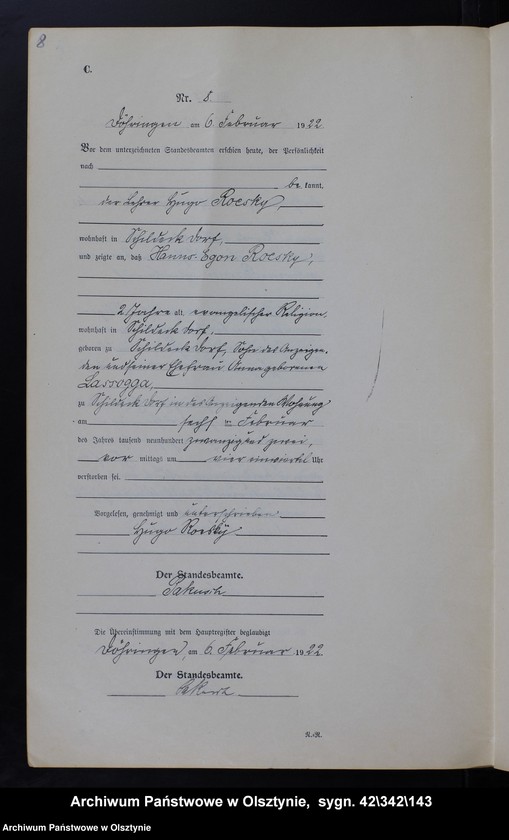 8
C.
Nr. 8.
Döhringen am 6. Februar 1922.
Vor dem unterzeichneten Standesbeamten erschien heute, der Persönlichkeit
nach
be kannt,
der Lehrer Hugo Roesky,
wohnhaft in Schildeck Dorf,
und zeigte an, daß Hanns-Egon Roesky,
2 Jahre alt, evangelischer Religion,
wohnhaft in Schildeck Dorf,
geboren zu Schildeck Dorf, Sohn des Anzeigen-
den und seiner Ehefrau Anna geborenen
Lassogga,
zu Schildeck Dorf in des Anzeigenden Wohnung
am sechs ten Februar
des Jahres tausend neunhundert zwanzig und zwei,
vor mittags um vier einviertel Uhr
verstorben sei.
Vorgelesen, genehmigt und unterschrieben
Hugo Roesky
Der Standesbeamte.
Die Übereinstimmung mit dem Hauptregister beglaubigt
Döhringen, am 6. Februar 1922
Der Standesbeamte.
Archiwum Państwowe w Olsztynie, sygn. 42\342\143
Archiwum Państwowe w Olsztynie